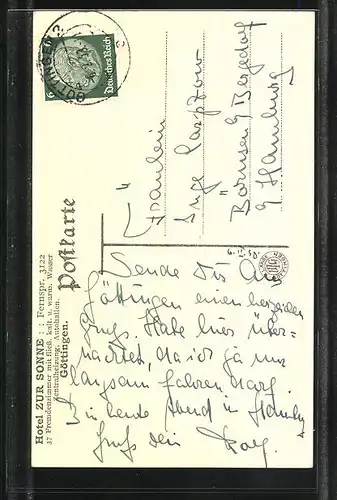 Hotel ZUR SONNE :: Fernspr. 3122
37 Fremdenzimmer mit fließ. kalt. u. warm. Wasser
Zentralheizung. Autohallen.
Göttingen.
Postkarte
Deutsches Reich
6
Fräulein
Inge
Börnsen b/ Bergedorf
b/ Hamburg
Sende Dir aus
Göttingen einen herzlichen
Gruß. Habe hier über-
nachtet, da ich ja nur
langsam fahren darf.
Bin heute Abend in Hamburg
Gruß dein